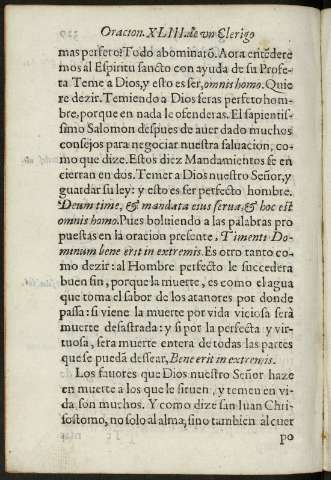 Oracion. XLIII. de vn Clerigo
mas perfeto? Todo abominarõ. Aora entẽdere
mos al Espiritu sancto con ayuda de su Profe-
ta Teme a Dios, y esto es ser, omnis homo. Quie
re dezir. Temiendo a Dios seras perfeto hom-
bre, porque en nada le ofenderas. El sapientis-
simo Salomon despues de auer dado muchos
consejos para negociar nuestra saluacion, co-
mo que dize. Estos diez Mandamientos se en
cierran en dos. Temer a Dios nuestro Señor, y
guardar su ley: y esto es ser perfecto hombre.
Deum time, & mandata eius serua, & hoc est
omnis homo. Pues boluiendo a las palabras pro
puestas en la oracion presente. Timenti Do-
minum bene erit in extremis. Es otro tanto co-
mo dezir: al Hombre perfecto le succedera
buen sin, porque la muerte, es como el agua
que toma el sabor de los atanores por donde
passa: si viene la muerte por vida viciosa será
muerte desastrada: y si por la perfecta y vir-
tuosa, sera muerte entera de todas las partes
que se pueda dessear, Bene erit in extremis.
Los fauores que Dios nuestro Señor haze
en muerte a los que le siruen, y temen en vi-
da son muchos. Y como dize san Iuan Chri-
sostomo, no solo al alma, sino tambien al cuer
po